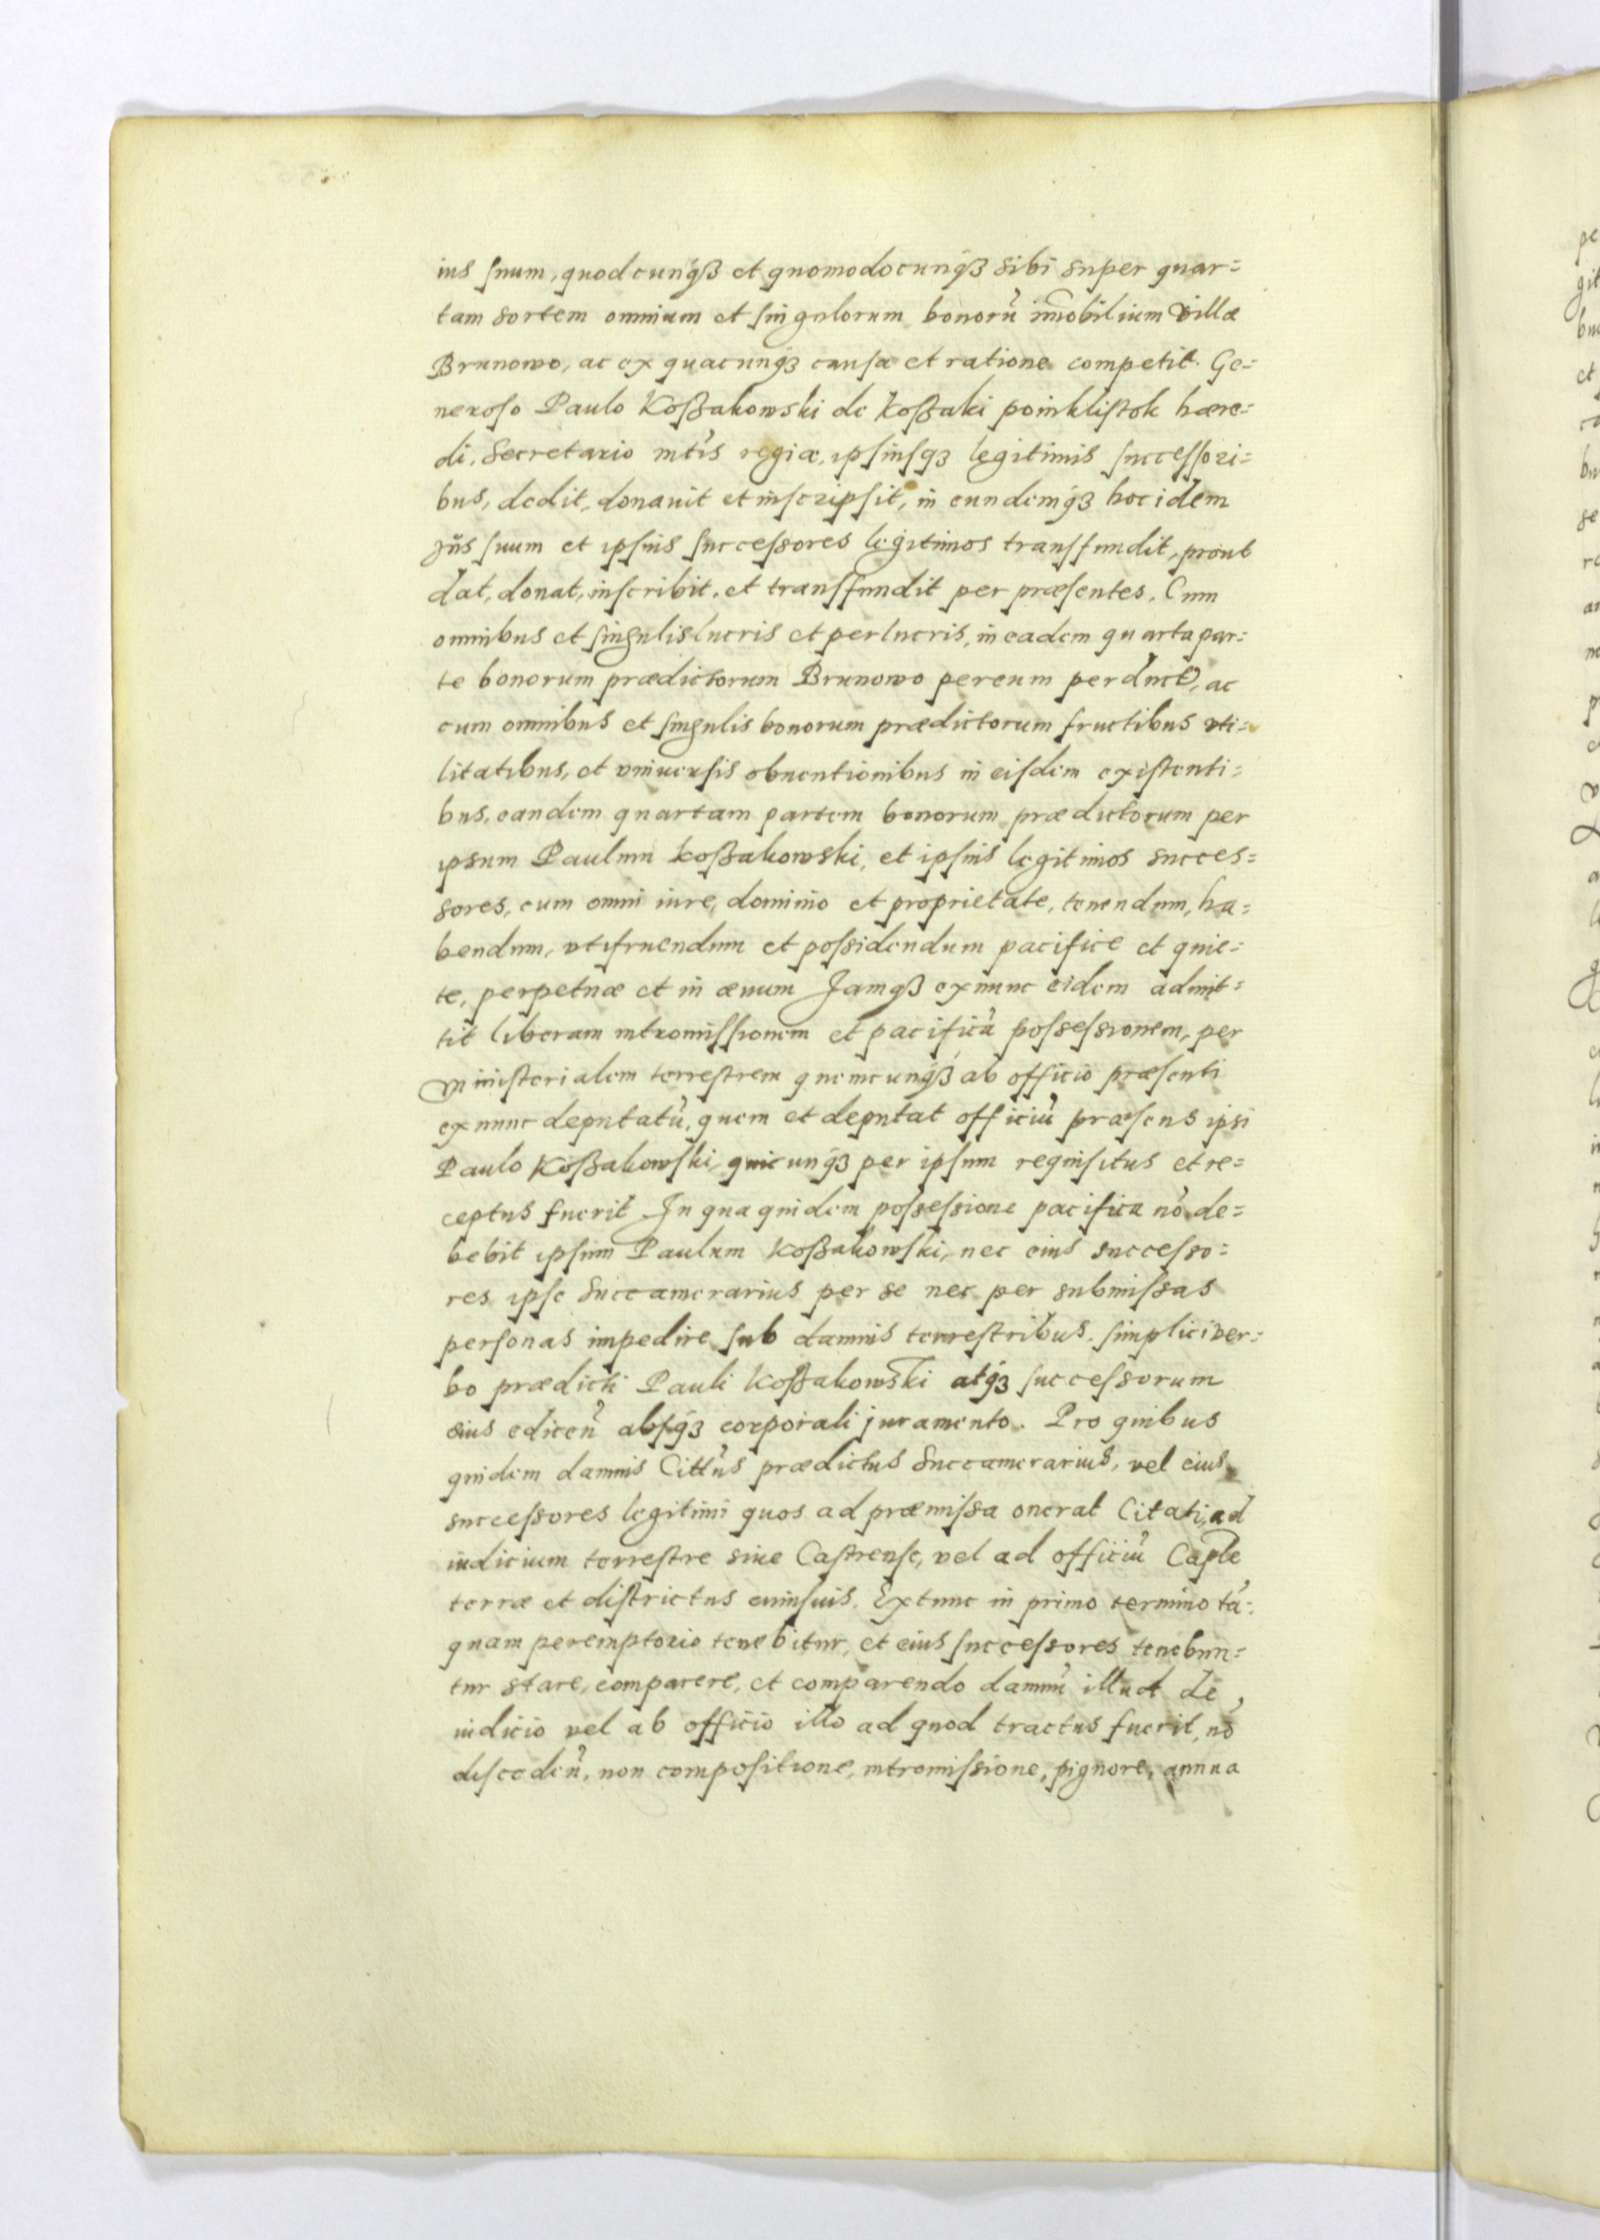 ius suum, quodcunq́ꝫ et quomodocunq́ꝫ sibi super quar=
tam sortem omnium et singulorum bonorũ im̃obilium villæ
Brunowo, ac ex quacunq́ꝫ causa et ratione competit. Ge=
neroso Paulo Koßakowski de Koßaki poinklistok hære=
di, Secretario mt̃is regiæ, ipsiusqꝫ legitimis successori=
bus, dedit, donauit et inscripsit, in eundemq́ꝫ hoc idem
Jus suum et ipsius successores legitimos transfundit, prout
dat, donat, inscribit, et transfundit per præsentes. Cum
omnibus et singulis lucris et perlucris, in eadem quarta par=
te bonorum prædictorum Brunowo per eum perduct̃, ac
cum omnibus et singulis bonorum prædictorum fructibus vti=
litatibus, et vniuersis obuentionibus in eisdem existenti=
bus, eandem quartam partem bonorum prædictorum per
ipsum Paulum Koßakowski, et ipsius legitimos succes=
sores, cum omni iure, dominio et proprietate, tenendum, ha=
bendum, vtifruendum et possidendum pacifice et quie=
te, perpetuæ et in æuum Jamqꝫ exnunc eidem admit=
tit liberam intromissionem et pacificã possessionem, per
ministerialem terrestrem quemcunq́ꝫ ab officio præsenti
exnunc deputatũ, quem et deputat officiũ præsens ipsi
Paulo Koßakowski, quicunq́ꝫ per ipsum requisitus et re=
ceptus fuerit Jn qua quidem possessione pacifica nõ de=
bebit ipsum Paulum Koßakowski, nec eius successo=
res ipse Succamerarius per se nec per submissas
personas impedire sub damnis terrestribus, simplici ver=
bo prædicti Pauli Koßakowski atq́ꝫ successorum
eius edicen̉ absq́ꝫ corporali juramento. Pro quibus
quidem damnis Citt̃us prædictus Succamerarius, vel eius
successores legitimi quos ad præmissa onerat Citati, ad
iudicium terrestre siue Castrense, vel ad officiũ Cap̃le
terræ et districtus cuiusuis. Extunc in primo termino tã=
quam peremptorio tenebitur, et eius successores tenebun=
tur stare, comparere, et comparendo damnũ illud de
iudicio vel ab officio illo ad quod tractus fuerit, nõ
disceden̉, non compositione, intromissione, pignore, annua